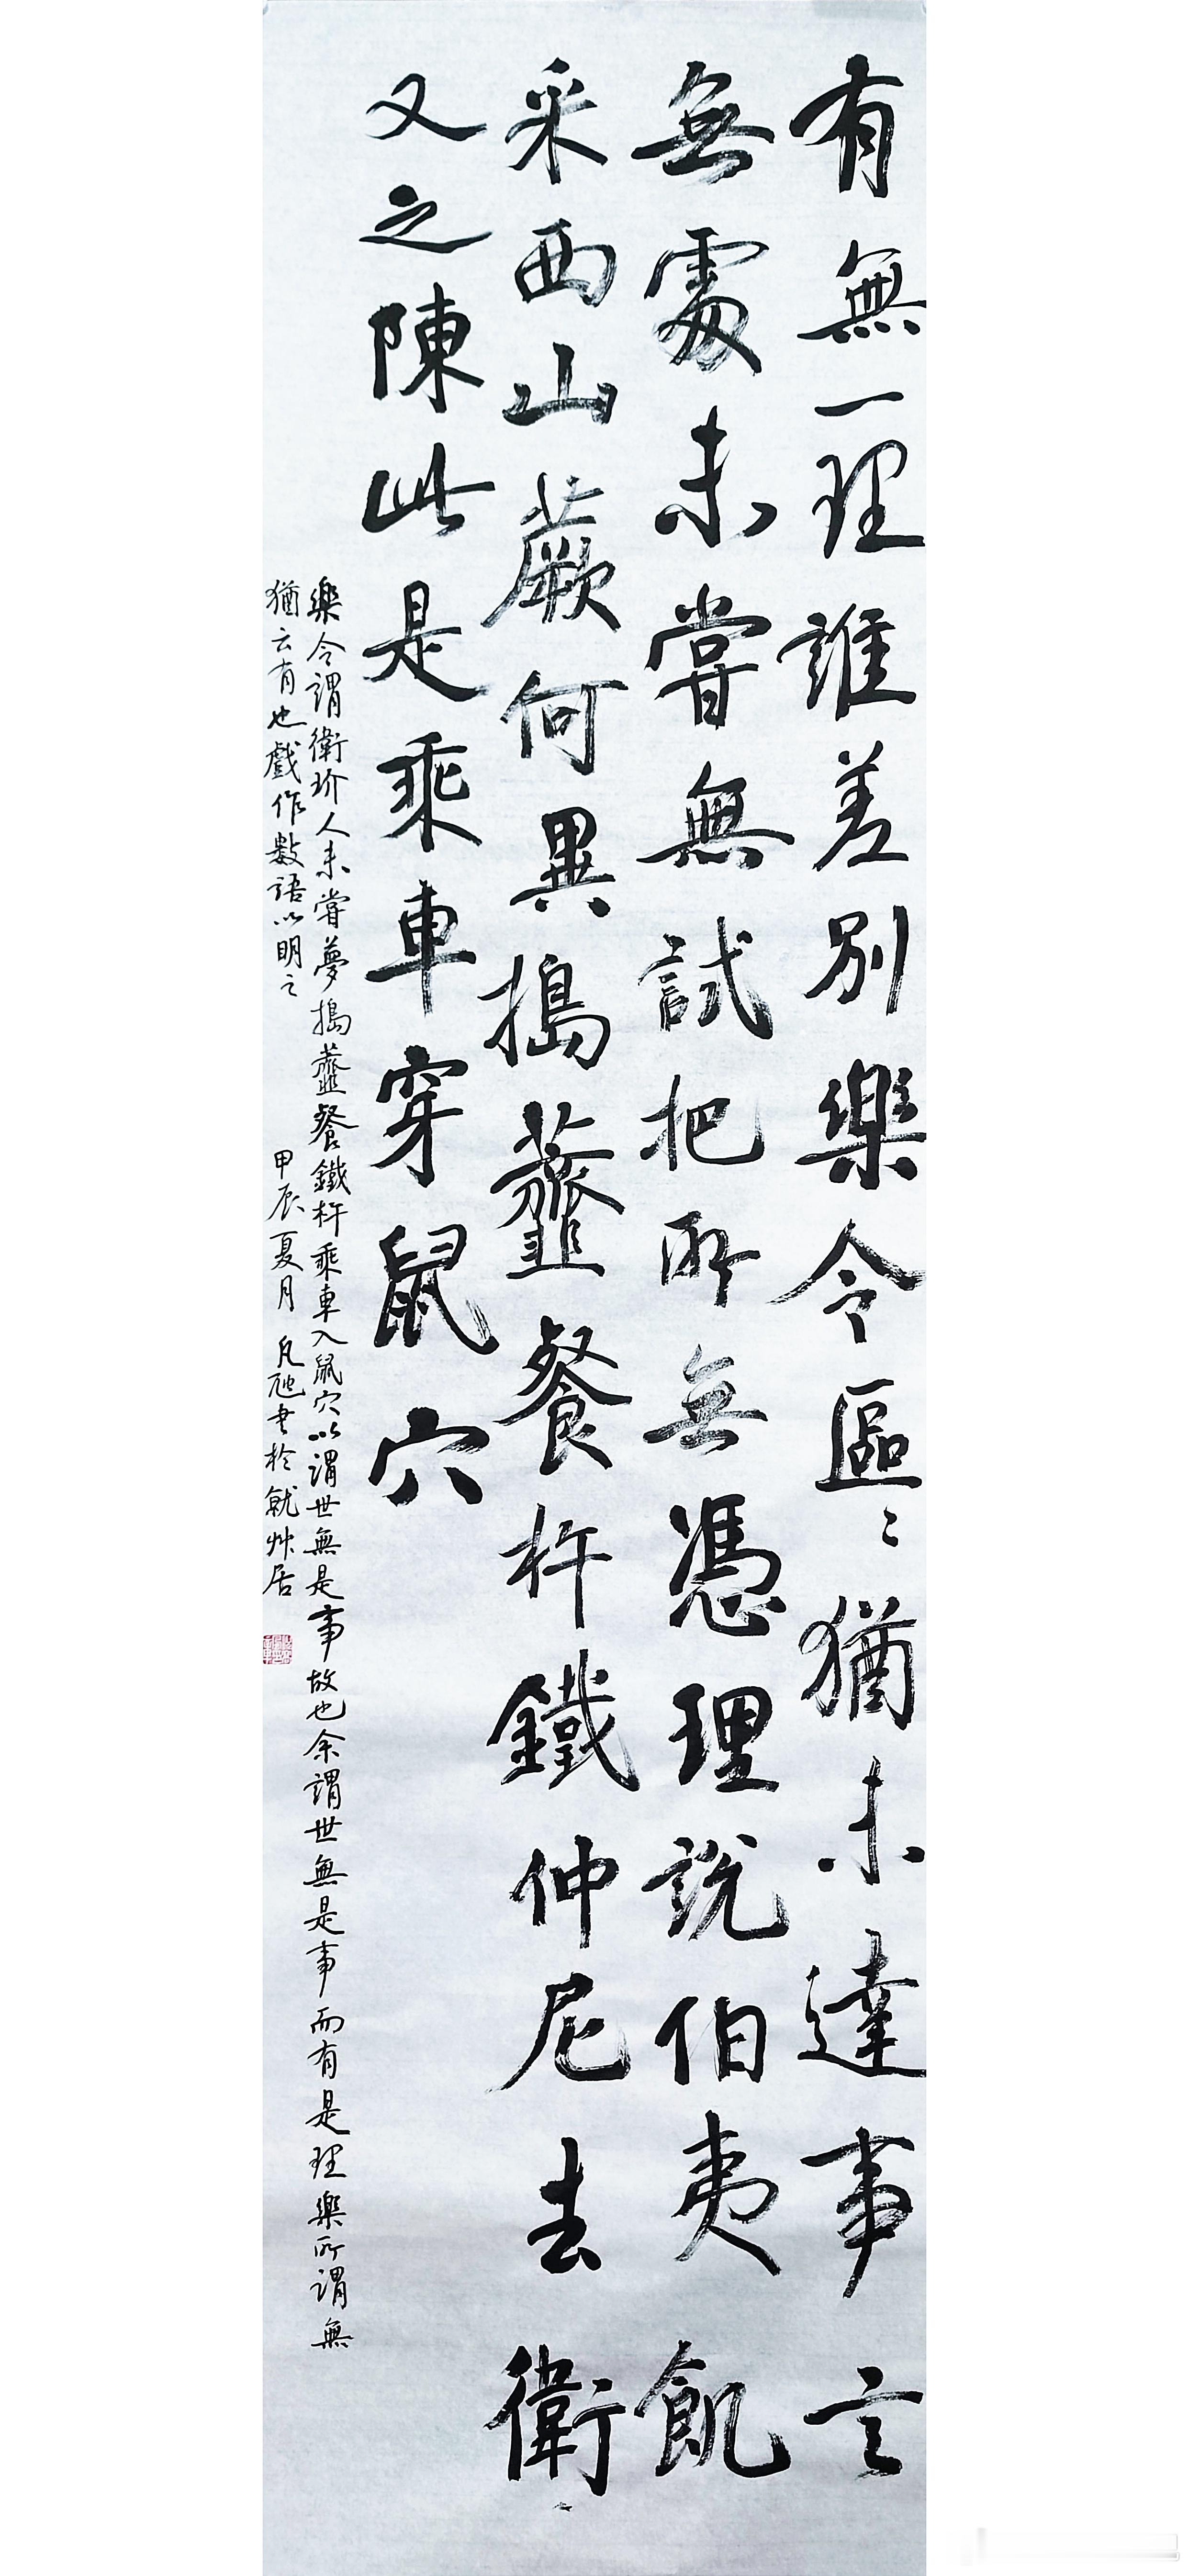 有無一理誰差別樂令區〻猶未達事言
無處未嘗無試把所無憑理說伯夷飢
采西山蕨何異擣虀餐杵鐵仲尼去衛〻
又之陳此是乘車穿鼠穴
樂令謂衛玠人未嘗夢搗虀餐鐵杵乘車入鼠穴以謂世無是事故也余謂世無是事而有是理樂所謂無
猶云有也戲作數語以明之
甲辰夏月 凡 書於 艸居